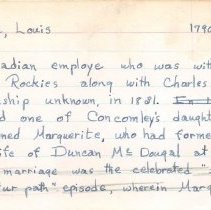 , Louis 1790
adian employe who was wit
Rockies along with Charles
ship unknown, in 1821. En t
d one of Concomley's daught
ned Marguerite, who had forme
ife of Duncan McDougal at
marriage was the celebrated "
ur path" episode, wherein Marg